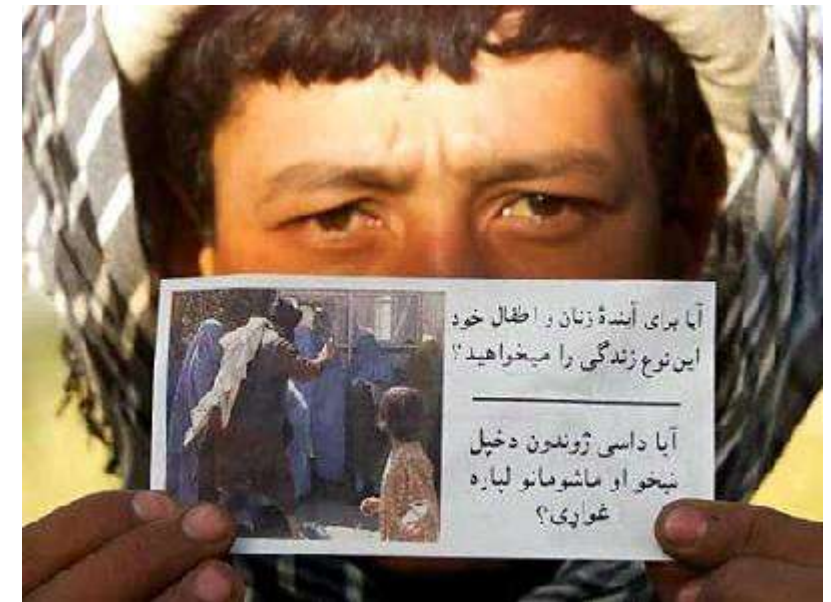 آیا برای آیندهٔ زنان و اطفال خود
این نوع زندگی را میخواهید؟
آیا داسی ژوندون دخپل
ښځو او ماشومانو لپاره
غواړی؟